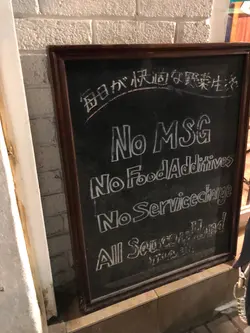 毎日が快適な野菜生活
No MSG
No Food Additives
No Service charge
All